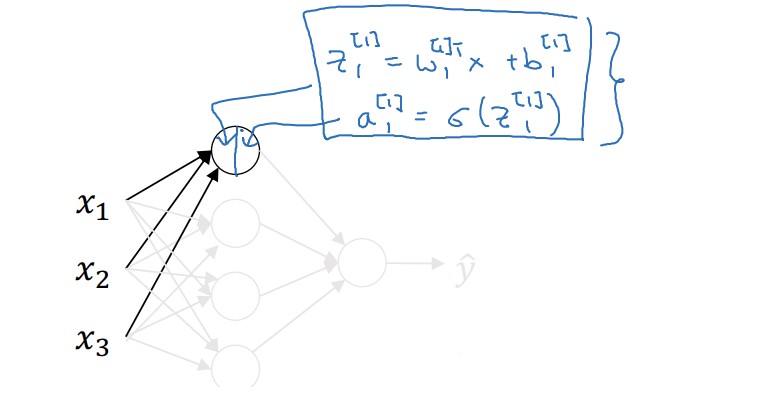 z₁^[1] = w₁^[1]T x + b₁^[1]
a₁^[1] = σ(z₁^[1])
x₁
x₂
ŷ
x₃